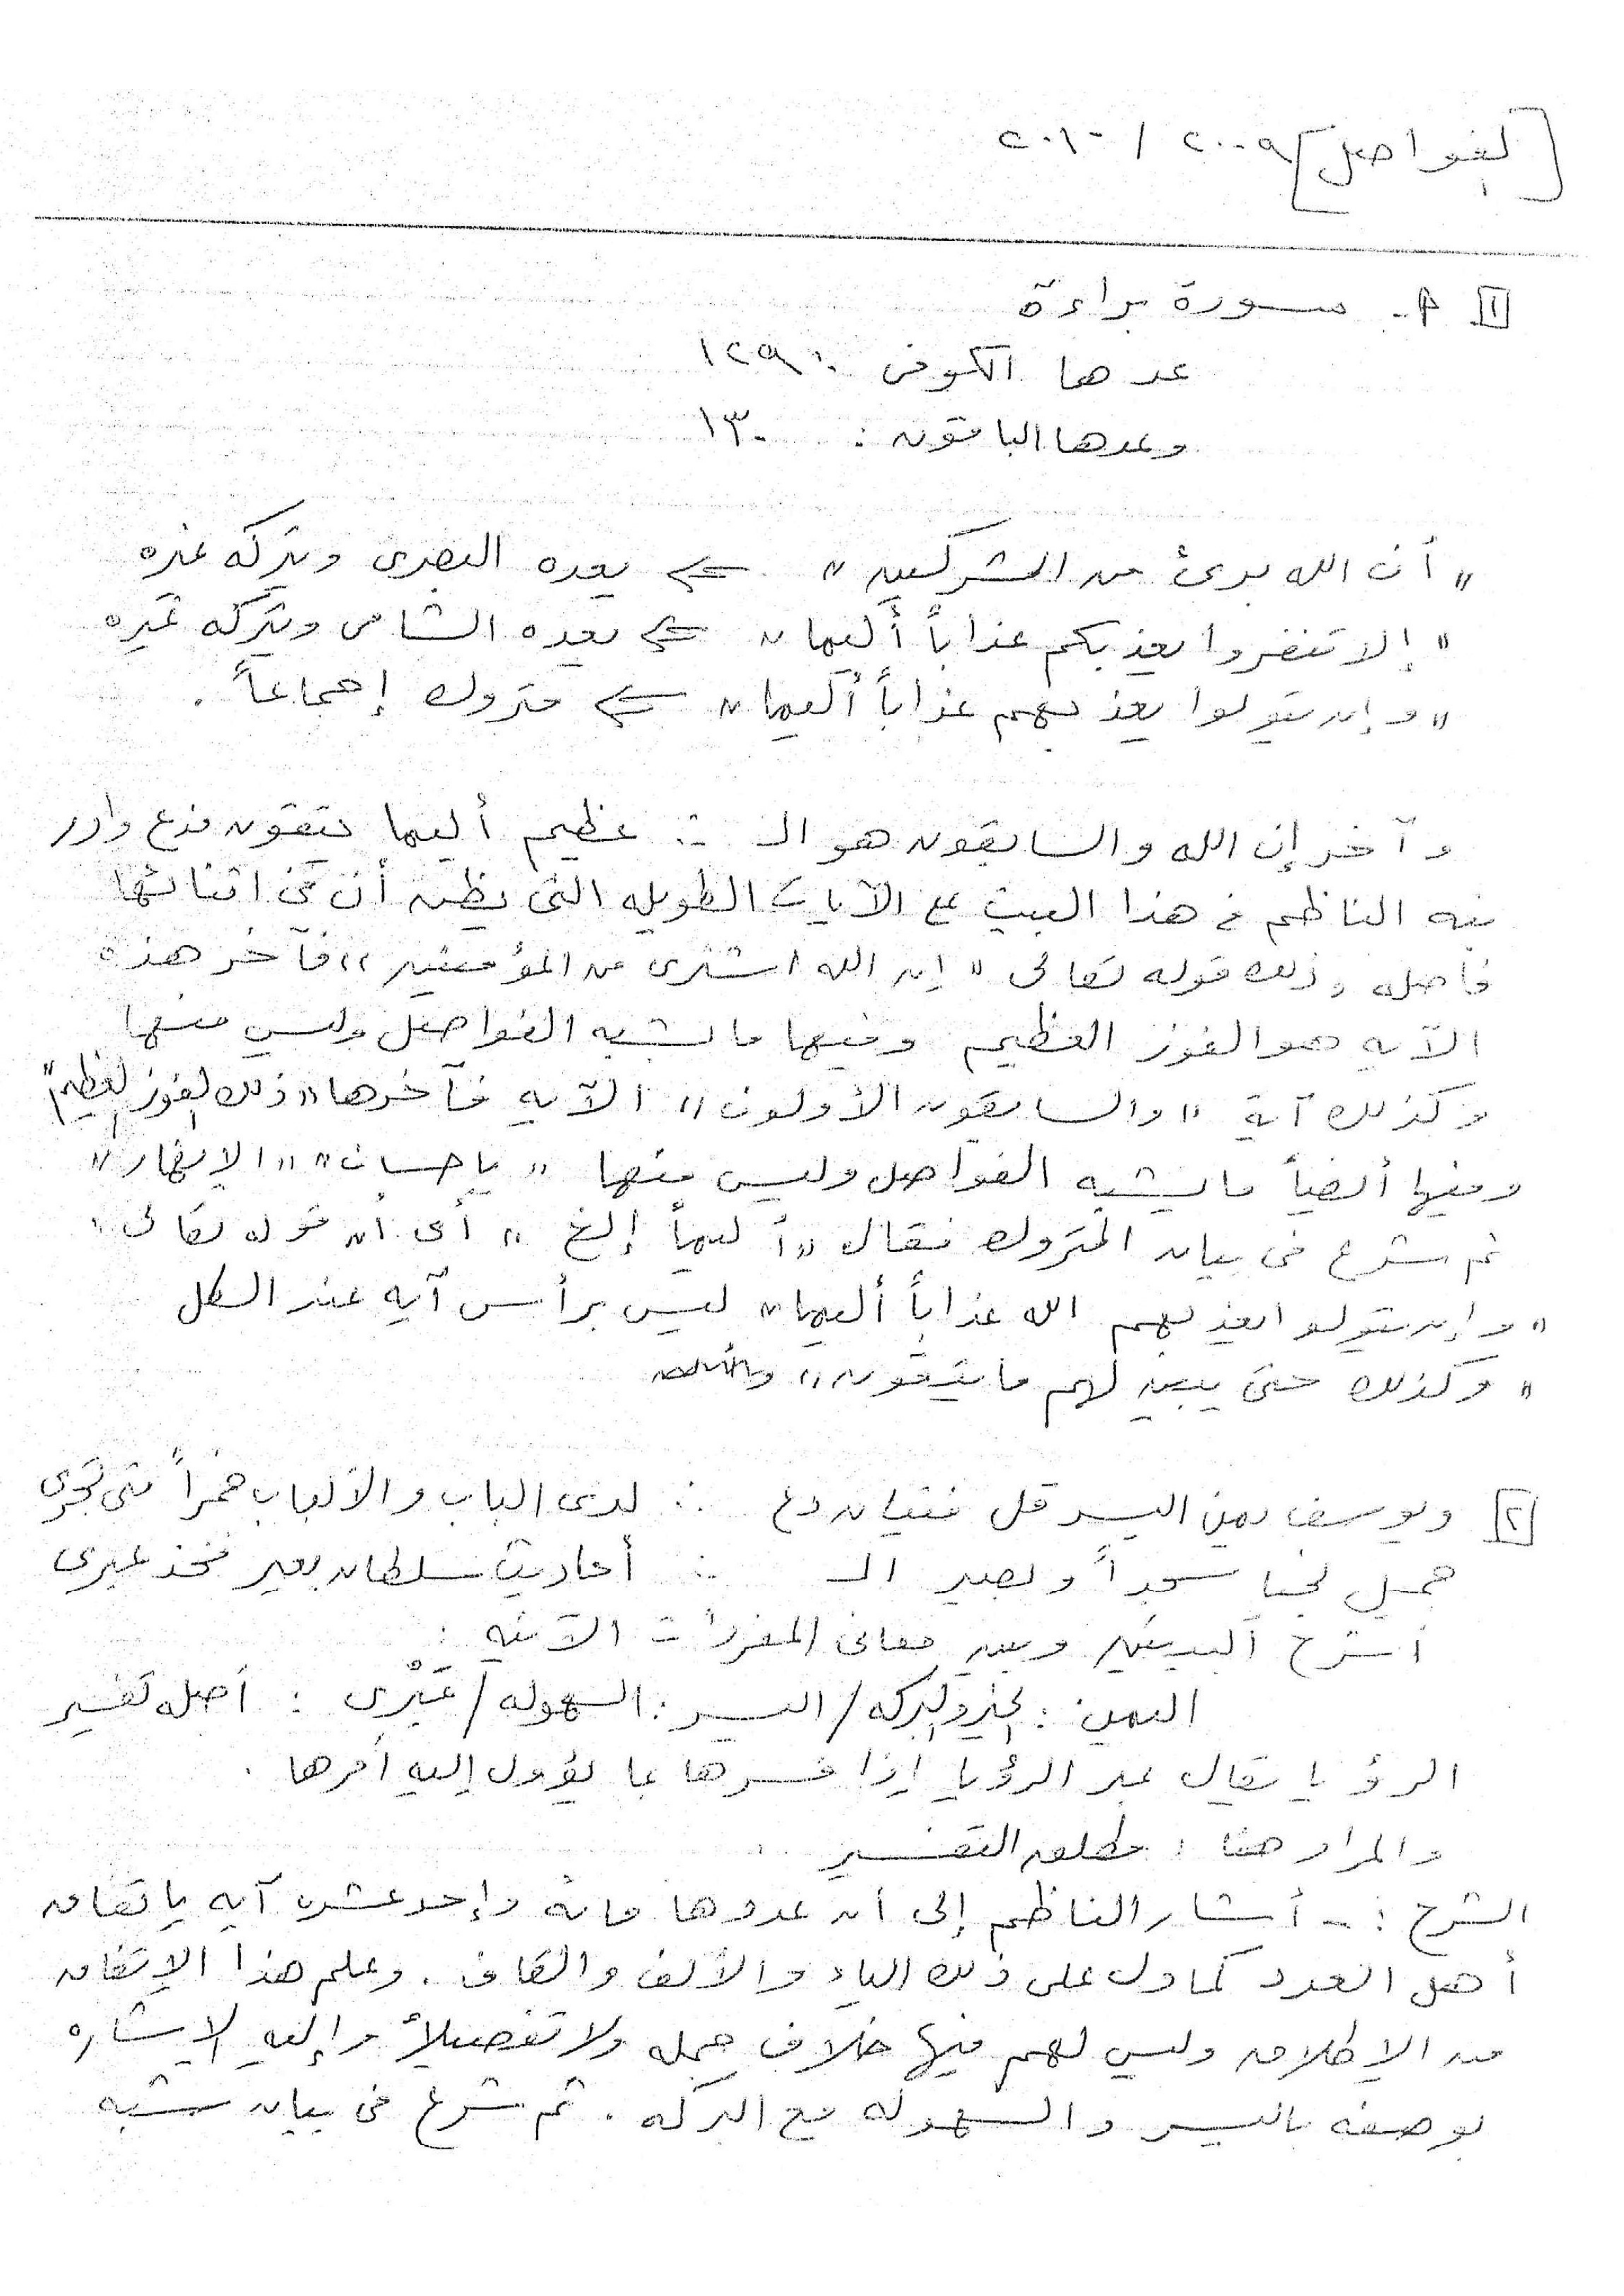 [الفواصل] ٢٠٠٩ / ٢٠١٠
[١] أ- سورة براءة
عدها الكوفى : ١٢٩
وعدها الباقون : ١٣٠
"أن الله برئ من المشركين" <= يعده البصرى ويتركه غيره
"إلا تنفروا يعذبكم عذاباً أليما" <= يعده الشامى ويتركه غيره
"وإن يتولوا يعذبهم عذاباً أليما" <= متروك إجماعاً .
وآخر إن الله والسابقون هو الـ ∴ عظيم أليما يتقون فدع وادر
نبه الناظم فى هذا البيت على الآيات الطويله التى يظن أن فى اثنائها
فاصله وذلك قوله تعالى "إن الله اشترى من المؤمنين" فآخر هذه
الآيه هو الفوز العظيم وفيها ما يشبه الفواصل وليس منها
وكذلك آية "والسابقون الأولون" الآيه فآخرها "ذلك الفوز العظيم"
وفيها أيضاً ما يشبه الفواصل وليس منها "بإحسان" "الانهار"
ثم شرع فى بيان المتروك فقال "أليماً إلخ" أى أن قوله تعالى
"وإن يتولوا يعذبهم الله عذاباً أليما" ليس برأس آيه عند الكل
"وكذلك حتى يبين لهم ما يتقون"
[٢] ويوسف يمن اليسر قل فتيان دع ∴ لدى الباب والألباب خمراً متى تجرى
جميل نجيا سجداً وبصير الـ ∴ أحاديث سلطان بعير فخذ عبرى
اشرح البيتين وبين معانى المفردات الآتيه :
اليمن : الخير والبركه / اليسر : السهوله / عَبْرى : أصله تفسير
الرؤيا يقال عبر الرؤيا إذا فسرها بما يؤول إليه أمرها .
والمراد هنا : مطلق التفسير .
الشرح :- أشار الناظم إلى أن عددها مائه وإحد عشر آيه باتفاق
أهل العدد كما دل على ذلك الياء والألف والقاف . وعلم هذا الاتفاق
من الإطلاق وليس لهم فيها خلاف جمله ولا تفصيلاً وإليه الاشاره
بوصفه باليسر والسهوله مع البركه . ثم شرع فى بيان شبه